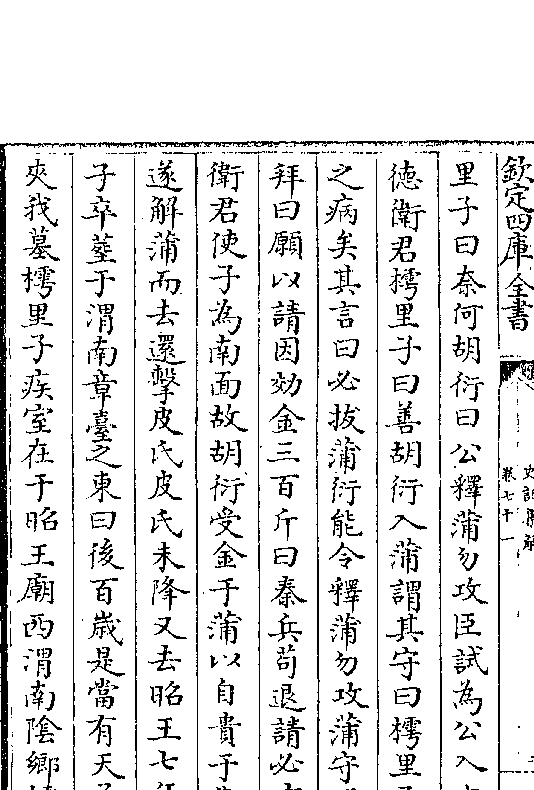 欽定四庫全書
史記集解
卷七十一
里子曰奈何胡衍曰公釋蒲勿攻臣試為公入
德衛君樗里子曰善胡衍入蒲謂其守曰樗里
之病矣其言曰必拔蒲衍能令釋蒲勿攻蒲守
拜曰願以請因効金三百斤曰秦兵茍退請必
衛君使子為南面故胡衍受金于蒲以自貴于
遂解蒲而去還擊皮氏皮氏未降又去昭王七
子卒葬于渭南章臺之東曰後百歲是當有天
夾我墓樗里子疾室在于昭王廟西渭南陰鄉